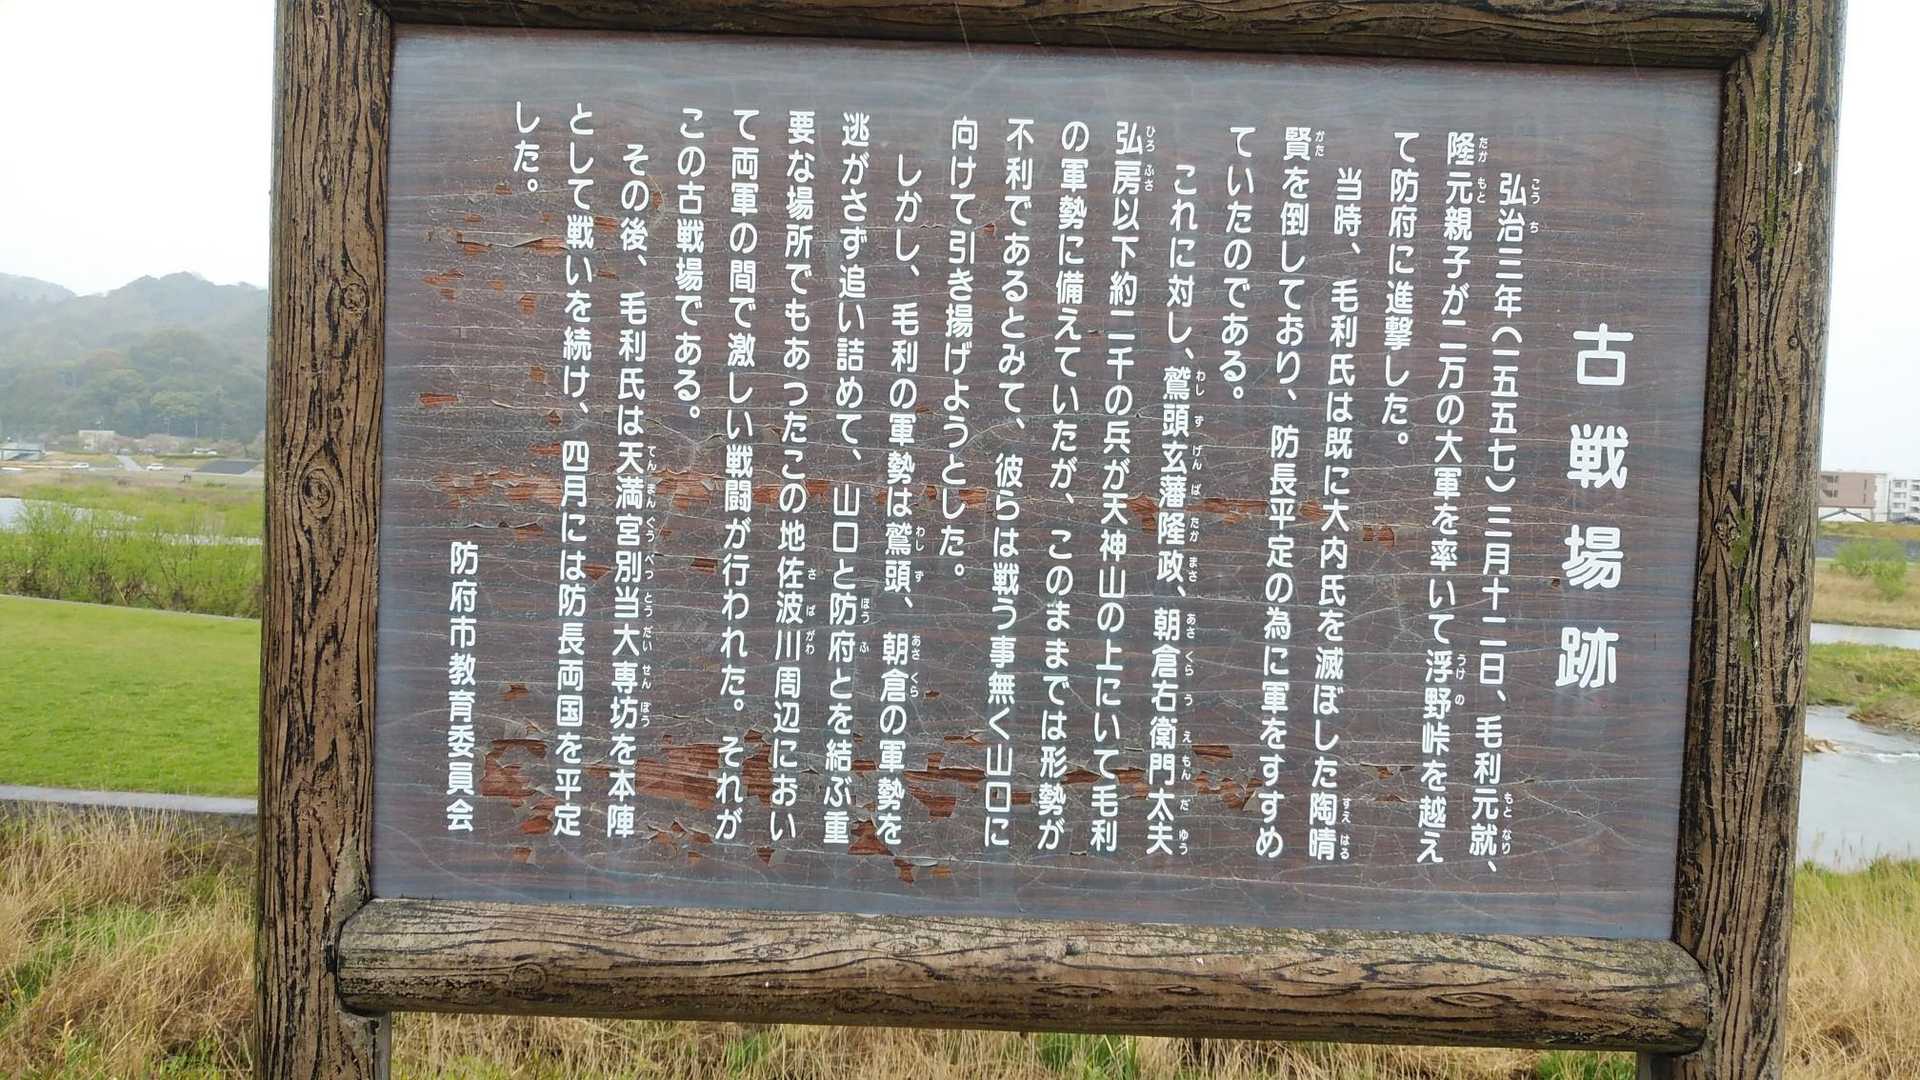 古戦場跡
弘治三年(一五五七)三月十二日、毛利元就、
隆元親子が二万の大軍を率いて浮野峠を越え
て防府に進撃した。
当時、毛利氏は既に大内氏を滅ぼした陶晴
賢を倒しており、防長平定の為に軍をすすめ
ていたのである。
これに対し、鷲頭玄藩隆政、朝倉右衛門太夫
弘房以下約二千の兵が天神山の上にいて毛利
の軍勢に備えていたが、このままでは形勢が
不利であるとみて、彼らは戦う事無く山口に
向けて引き揚げようとした。
しかし、毛利の軍勢は鷲頭、朝倉の軍勢を
逃がさず追い詰めて、山口と防府とを結ぶ重
要な場所でもあったこの地佐波川周辺におい
て両軍の間で激しい戦闘が行われた。それが
この古戦場である。
その後、毛利氏は天満宮別当大専坊を本陣
として戦いを続け、四月には防長両国を平定
した。
防府市教育委員会